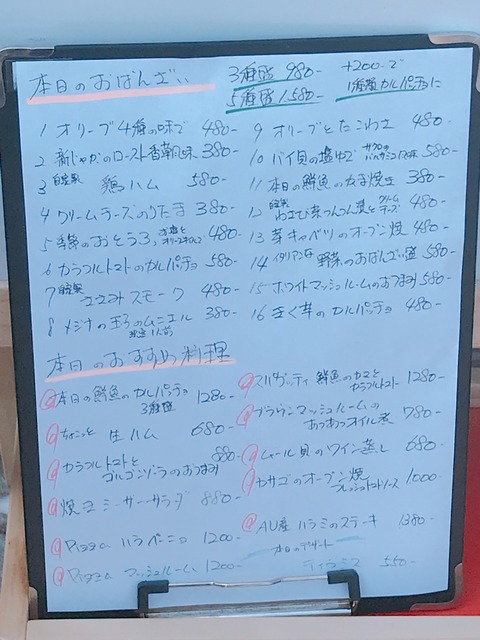 本日のおばんざい
3種盛 980-
5種盛 1.580-
+200-で
1種類カルパッチョに
1 オリーブ4種の味で 480-
2 新じゃがのロースト香草風味 380-
3 自家製 鶏ハム 580-
4 クリームチーズのりたま 380-
5 季節のおとうふ お塩とオリーブオイルで 480-
6 カラフルトマトのカルパッチョ 580-
7 自家製 ささみスモーク 480-
8 メジナの玉子のムニエル 380-
9 オリーブとたこわさ 480-
10 バイ貝の塩ゆで 580-
11 本日の鮮魚のかま焼き 380-
12 自家製 わさび菜つんつん漬とクリームチーズ 480-
13 芽キャベツのオーブン焼 480-
14 イタリアンな野菜のおばんざい盛 580-
15 ホワイトマッシュルームのおつまみ 580-
16 きく芋のカルパッチョ 480-
本日のおすすめ料理
本日の鮮魚のカルパッチョ 3種盛 1280-
ちょこっと 生ハム 680-
カラフルトマトとゴルゴンゾーラのおつまみ 880-
焼きシーザーサラダ 880-
Pizza ハラペーニョ 1200-
Pizza マッシュルーム 1200-
スパゲッティ 鮮魚のカマとカラフルトマト 1280-
ブラウンマッシュルームのあつあつオイル煮 780-
ムール貝のワイン蒸し 680-
カサゴのオーブン焼 フレッシュトマトソース 1000-
AU産ハラミのステーキ 1380-
本日のデザート
ティラミス 550-